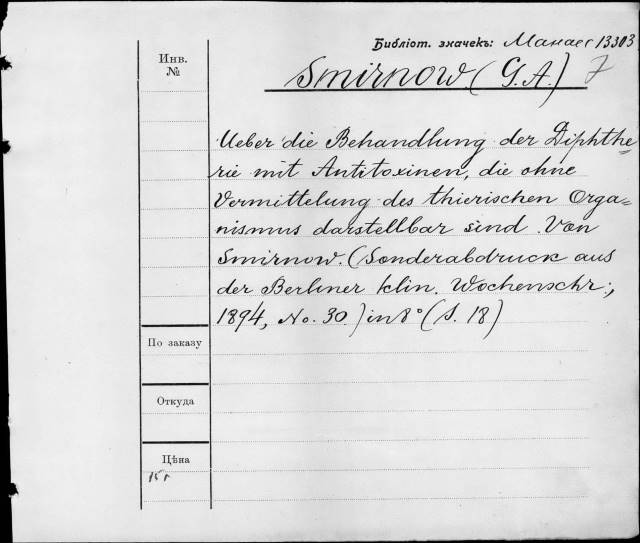 Библіот. значекъ: Манасс 13303
Инв.
№
Smirnow. (G. A.) 7
Ueber die Behandlung der Diphthe=
rie mit Antitoxinen, die ohne
Vermittelung des thierischen Orga=
nismus darstellbar sind. Von
Smirnow. (Sonderabdruck aus
der Berliner klin. Wochenschr.,
1894, No. 30.) in 8° (S. 18)
По заказу
Откуда
Цѣна
15